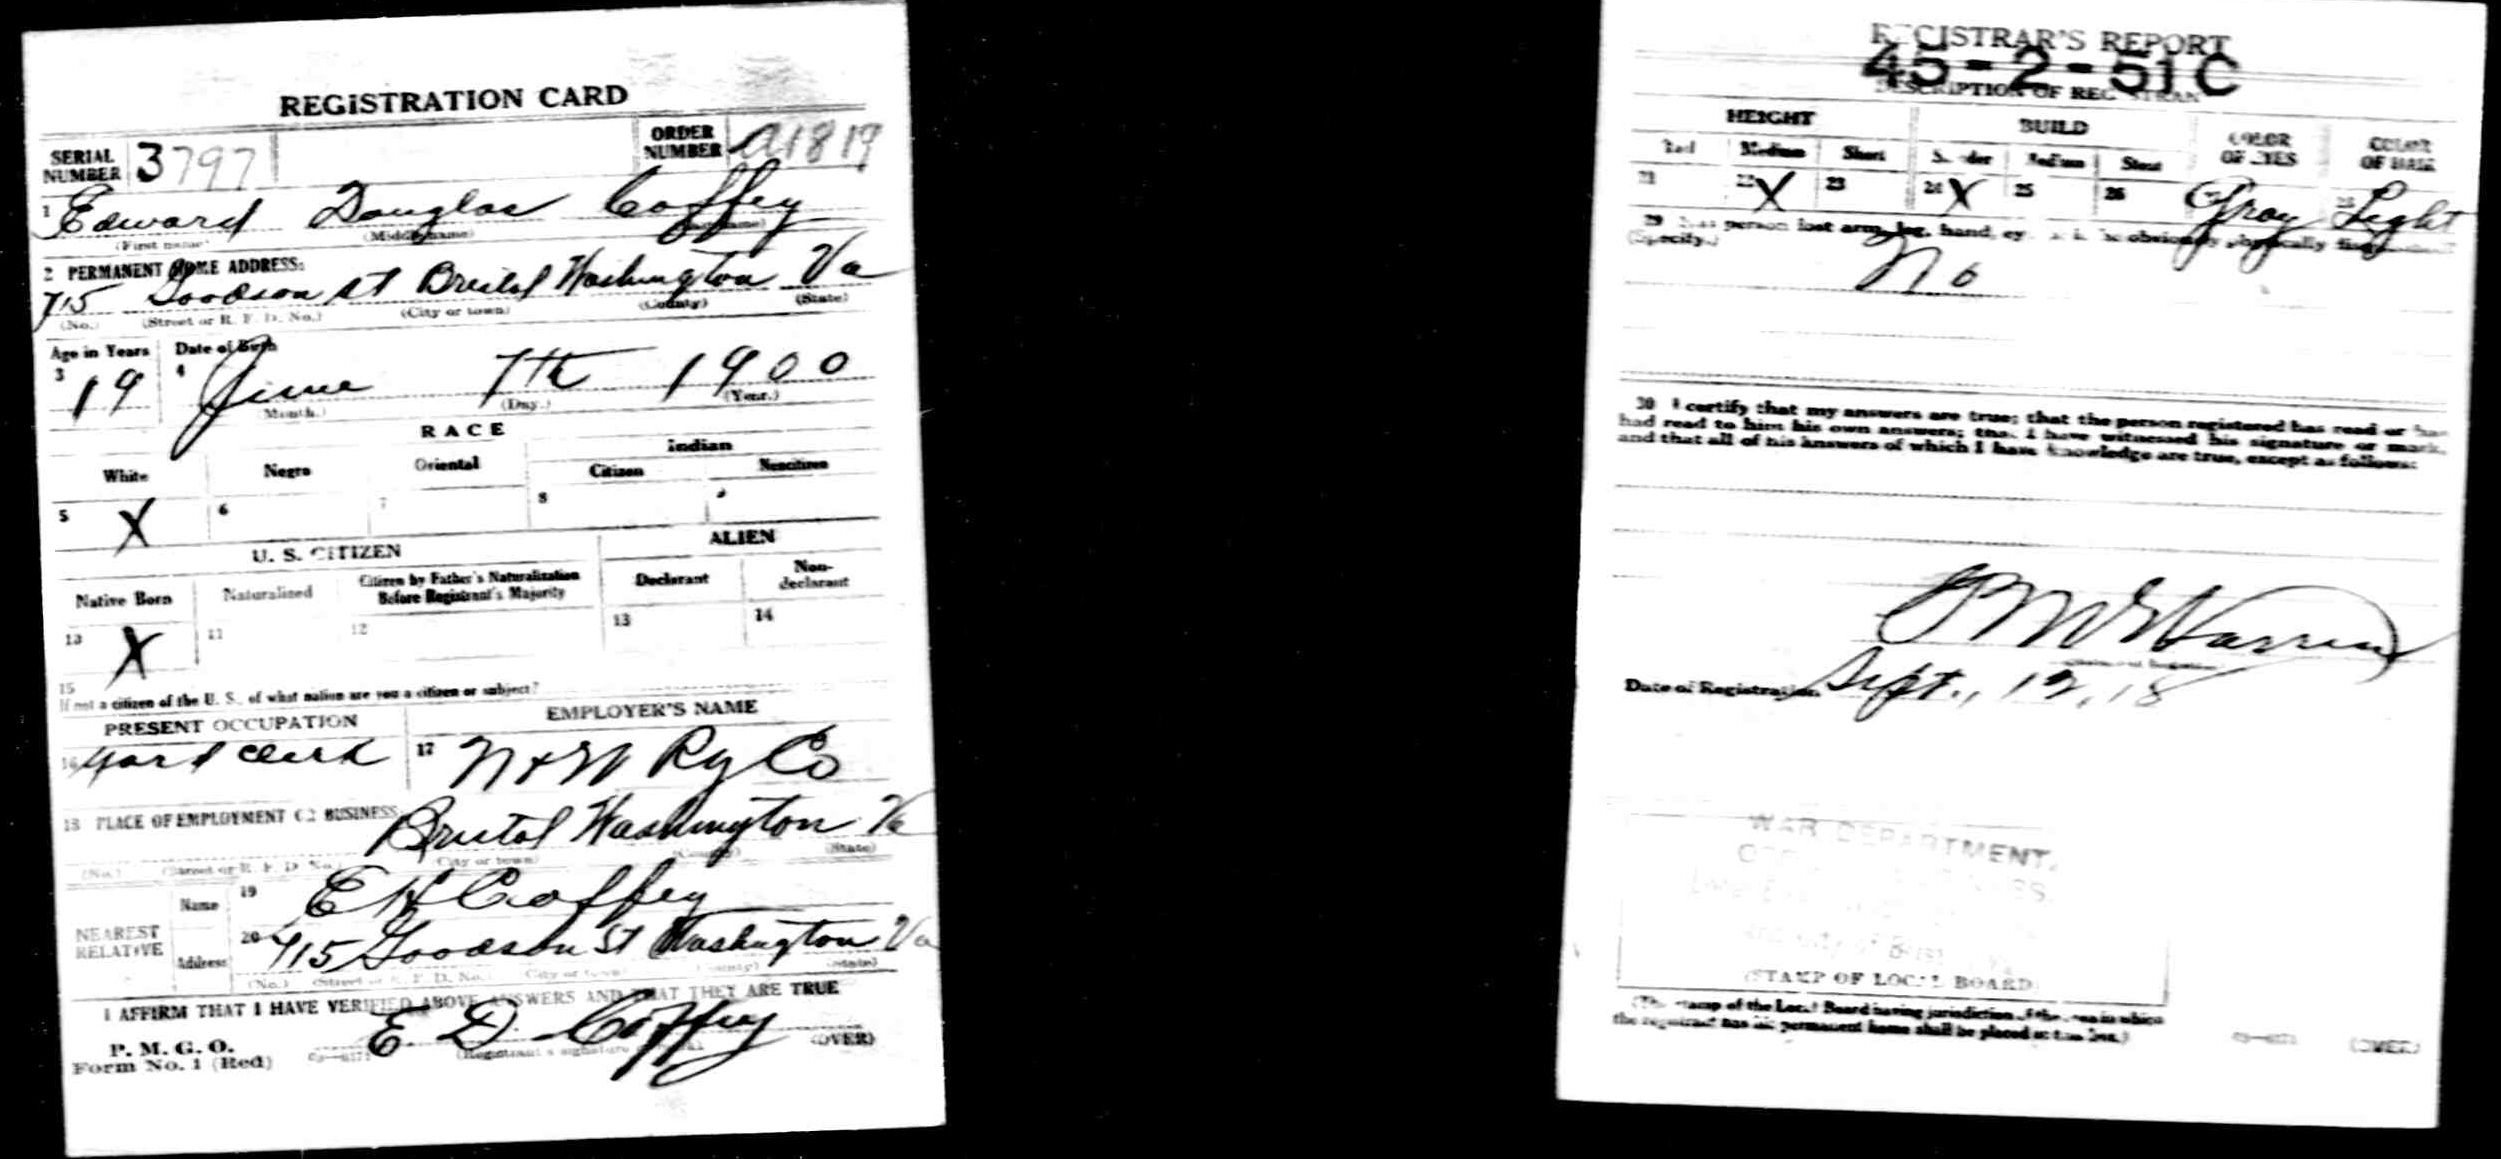 REGISTRATION CARD
SERIAL NUMBER 3797 ORDER NUMBER A1819
1 Edward Douglas Coffey
(First name) (Middle name) (Last name)
2 PERMANENT HOME ADDRESS:
715 Goodson St Bristol Washington Va
(No.) (Street or R. F. D. No.) (City or town) (County) (State)
Age in Years Date of Birth
3 19 4 June 7th 1900
(Month.) (Day.) (Year.)
RACE
White Negro Oriental Indian
Citizen Noncitizen
5 X 6 7 8 9
U. S. CITIZEN ALIEN
Native Born Naturalized Citizen by Father's Naturalization Before Registrant's Majority Declarant Non-declarant
10 X 11 12 13 14
15
If not a citizen of the U. S., of what nation are you a citizen or subject?
PRESENT OCCUPATION EMPLOYER'S NAME
16 Yard Clerk 17 N & W Ry Co
18 PLACE OF EMPLOYMENT OR BUSINESS:
Bristol Washington Va
(No.) (Street or R. F. D. No.) (City or town) (County) (State)
NEAREST RELATIVE Name 19 E H Coffey
Address 20 715 Goodson St Washington Va
(No.) (Street or R. F. D. No.) (City or town) (County) (State)
I AFFIRM THAT I HAVE VERIFIED ABOVE ANSWERS AND THAT THEY ARE TRUE
P. M. G. O.
Form No. 1 (Red) E D Coffey
(Registrant's signature or mark) (OVER)
REGISTRAR'S REPORT
45-2-51 C
DESCRIPTION OF REGISTRANT
HEIGHT BUILD COLOR OF EYES COLOR OF HAIR
Tall Medium Short Slender Medium Stout
21 22 X 23 24 X 25 26 Gray Light
29 Has person lost arm, leg, hand, eye, or is he obviously physically disqualified?
(Specify.) No
30 I certify that my answers are true; that the person registered has read or has
had read to him his own answers; that I have witnessed his signature or mark,
and that all of his answers of which I have knowledge are true, except as follows:
Date of Registration Sept., 12, 18
WAR DEPARTMENT,
(STAMP OF LOCAL BOARD)
(The stamp of the Local Board having jurisdiction of the area in which
the registrant has his permanent home shall be placed in this box.)
(OVER)